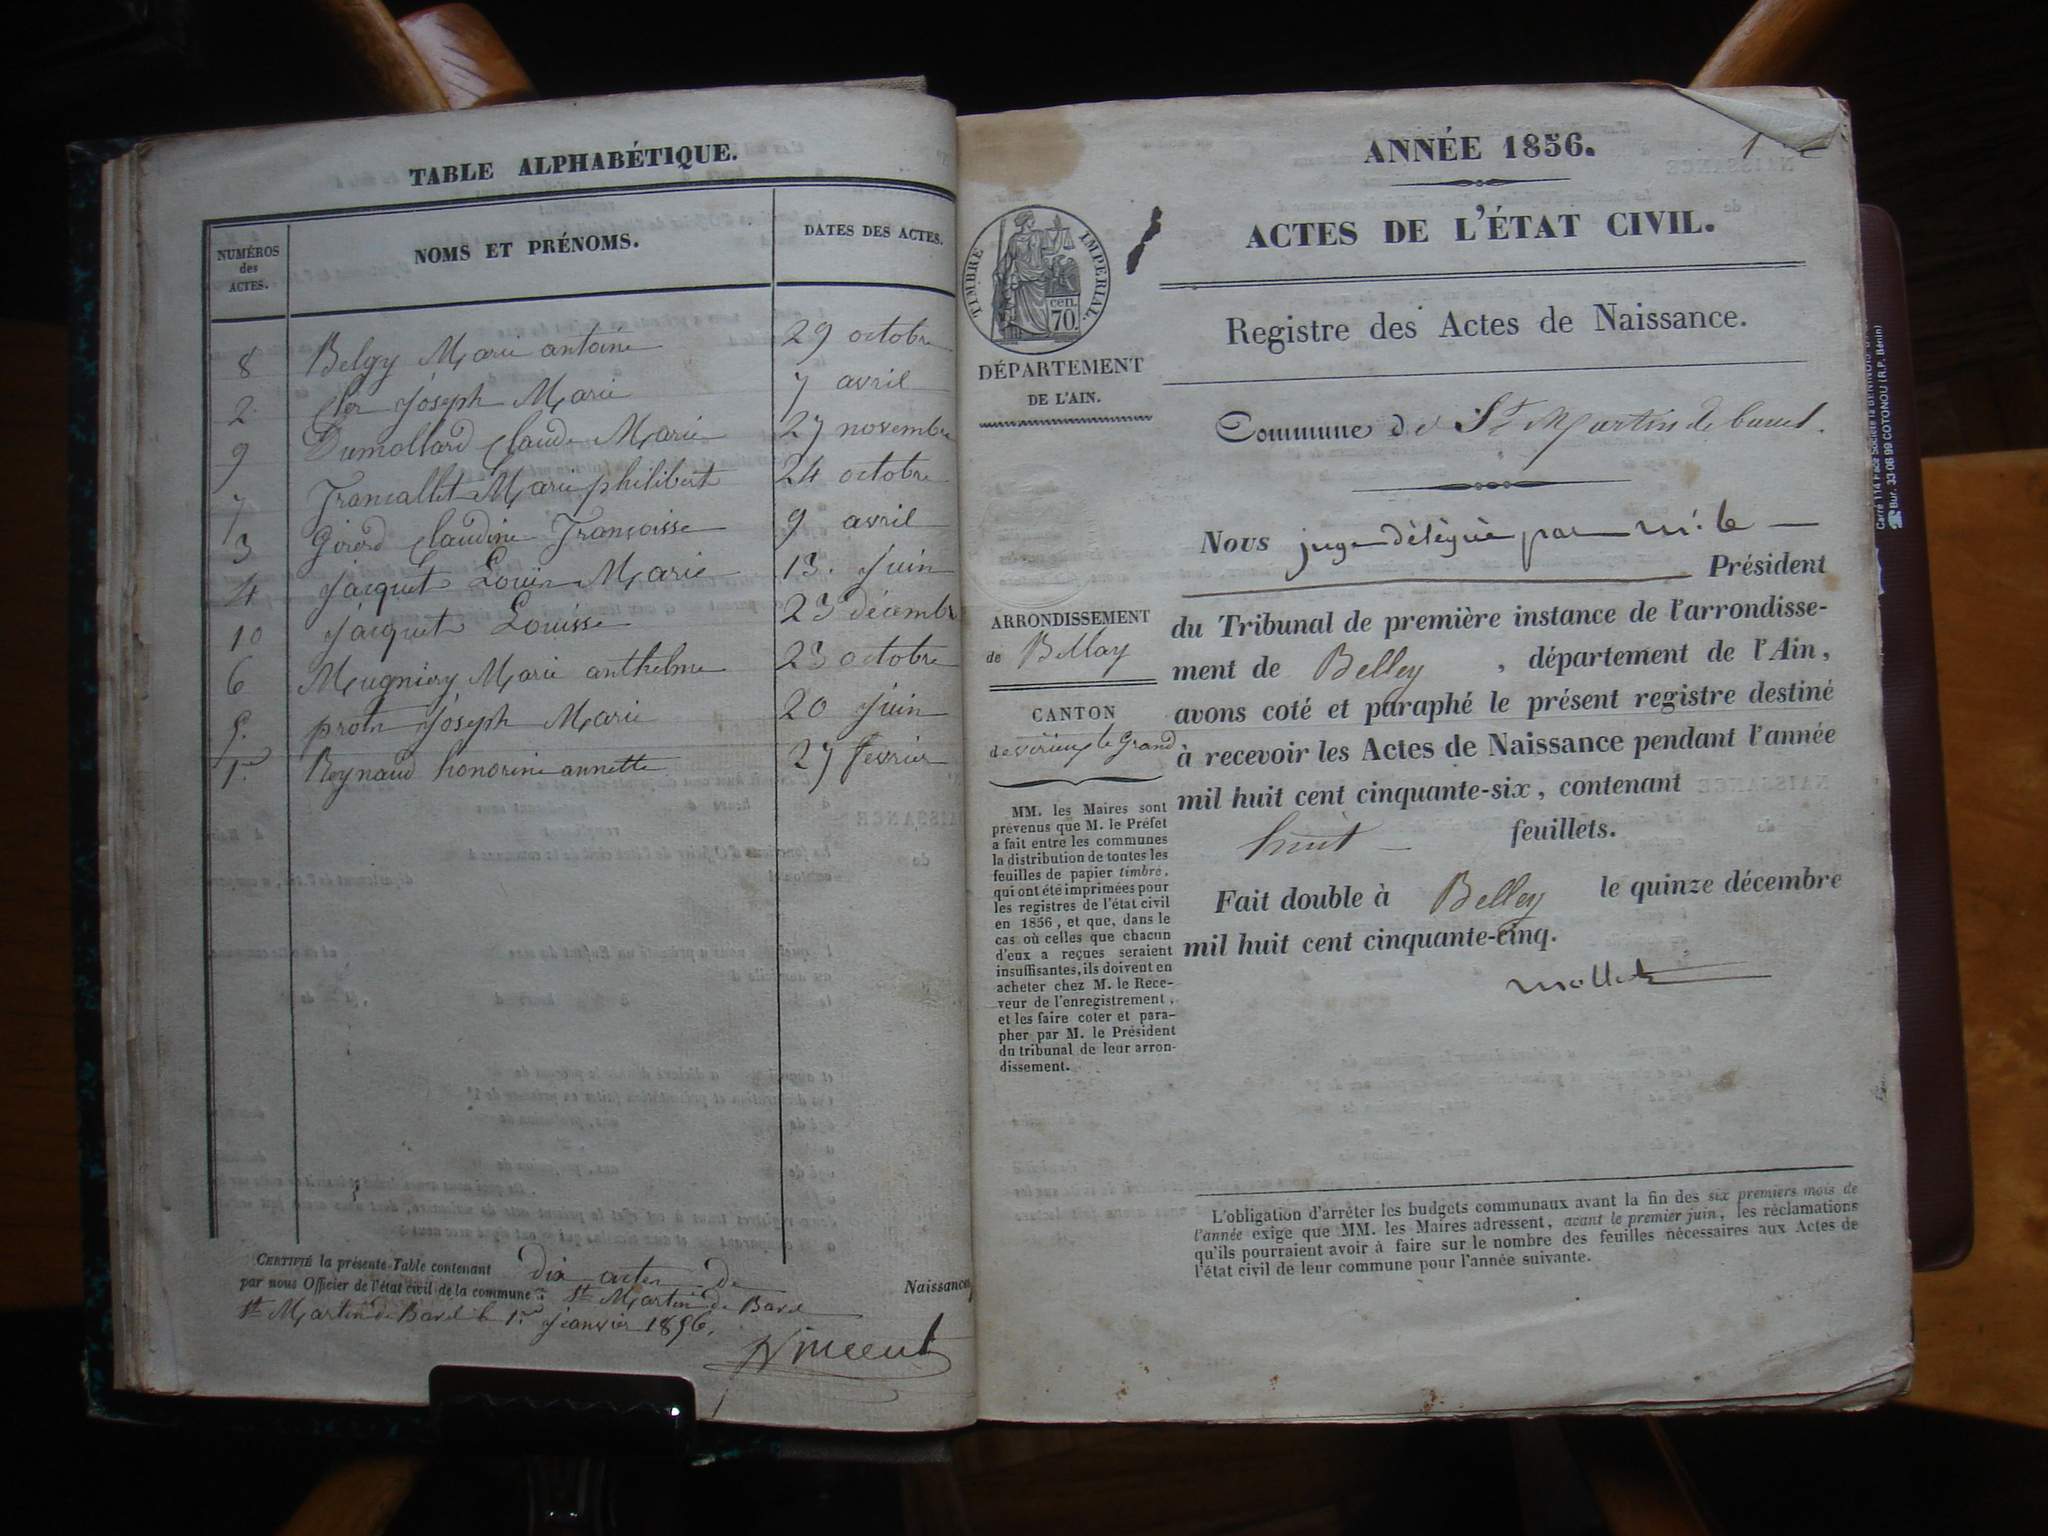 TABLE ALPHABÉTIQUE.
NUMÉROS des ACTES.
NOMS ET PRÉNOMS.
DATES DES ACTES.
8 Belgy Marie antoine 29 octobre
2 Cler Joseph Marie 7 avril
9 Dumollard Claude Marie 27 novembre
7 Francallet Marie philibert 24 octobre
3 Girerd Claudine Françoisse 9 avril
4 Jacquet Louis Marie 13. Juin
10 Jacquet Louisse 23 décembre
6 Mugniery Marie anthelme 23 octobre
5. Joseph Marie 20 Juin
1er Reynaud honorine annette 27 fevrier
CERTIFIÉ la présente Table contenant dix actes de Naissance,
par nous Officier de l'état civil de la commune de St Martin de Bavel
St Martin de Bavel le 1er Janvier 1856.
Vincent
1
ANNÉE 1856.
ACTES DE L'ÉTAT CIVIL.
Registre des Actes de Naissance.
TIMBRE IMPÉRIAL.
70. cen.
DÉPARTEMENT
DE L'AIN.
Commune de St Martin de bavel.
Nous juge délégué par mr. le
Président
du Tribunal de première instance de l'arrondisse-
ment de Belley, département de l'Ain,
avons coté et paraphé le présent registre destiné
à recevoir les Actes de Naissance pendant l'année
mil huit cent cinquante-six, contenant
huit feuillets.
Fait double à Belley le quinze décembre
mil huit cent cinquante-cinq.
ARRONDISSEMENT
de Bellay
CANTON
de virieu le Grand
MM. les Maires sont
prévenus que M. le Préfet
a fait entre les communes
la distribution de toutes les
feuilles de papier timbré,
qui ont été imprimées pour
les registres de l'état civil
en 1856, et que, dans le
cas où celles que chacun
d'eux a reçues seraient
insuffisantes, ils doivent en
acheter chez M. le Rece-
veur de l'enregistrement,
et les faire coter et para-
pher par M. le Président
du tribunal de leur arron-
dissement.
L'obligation d'arrêter les budgets communaux avant la fin des six premiers mois de
l'année exige que MM. les Maires adressent, avant le premier juin, les réclamations
qu'ils pourraient avoir à faire sur le nombre des feuilles nécessaires aux Actes de
l'état civil de leur commune pour l'année suivante.
Carré 114 Face Société la BENINOISE
Bur. 33 06 99 COTONOU (R.P. Bénin)